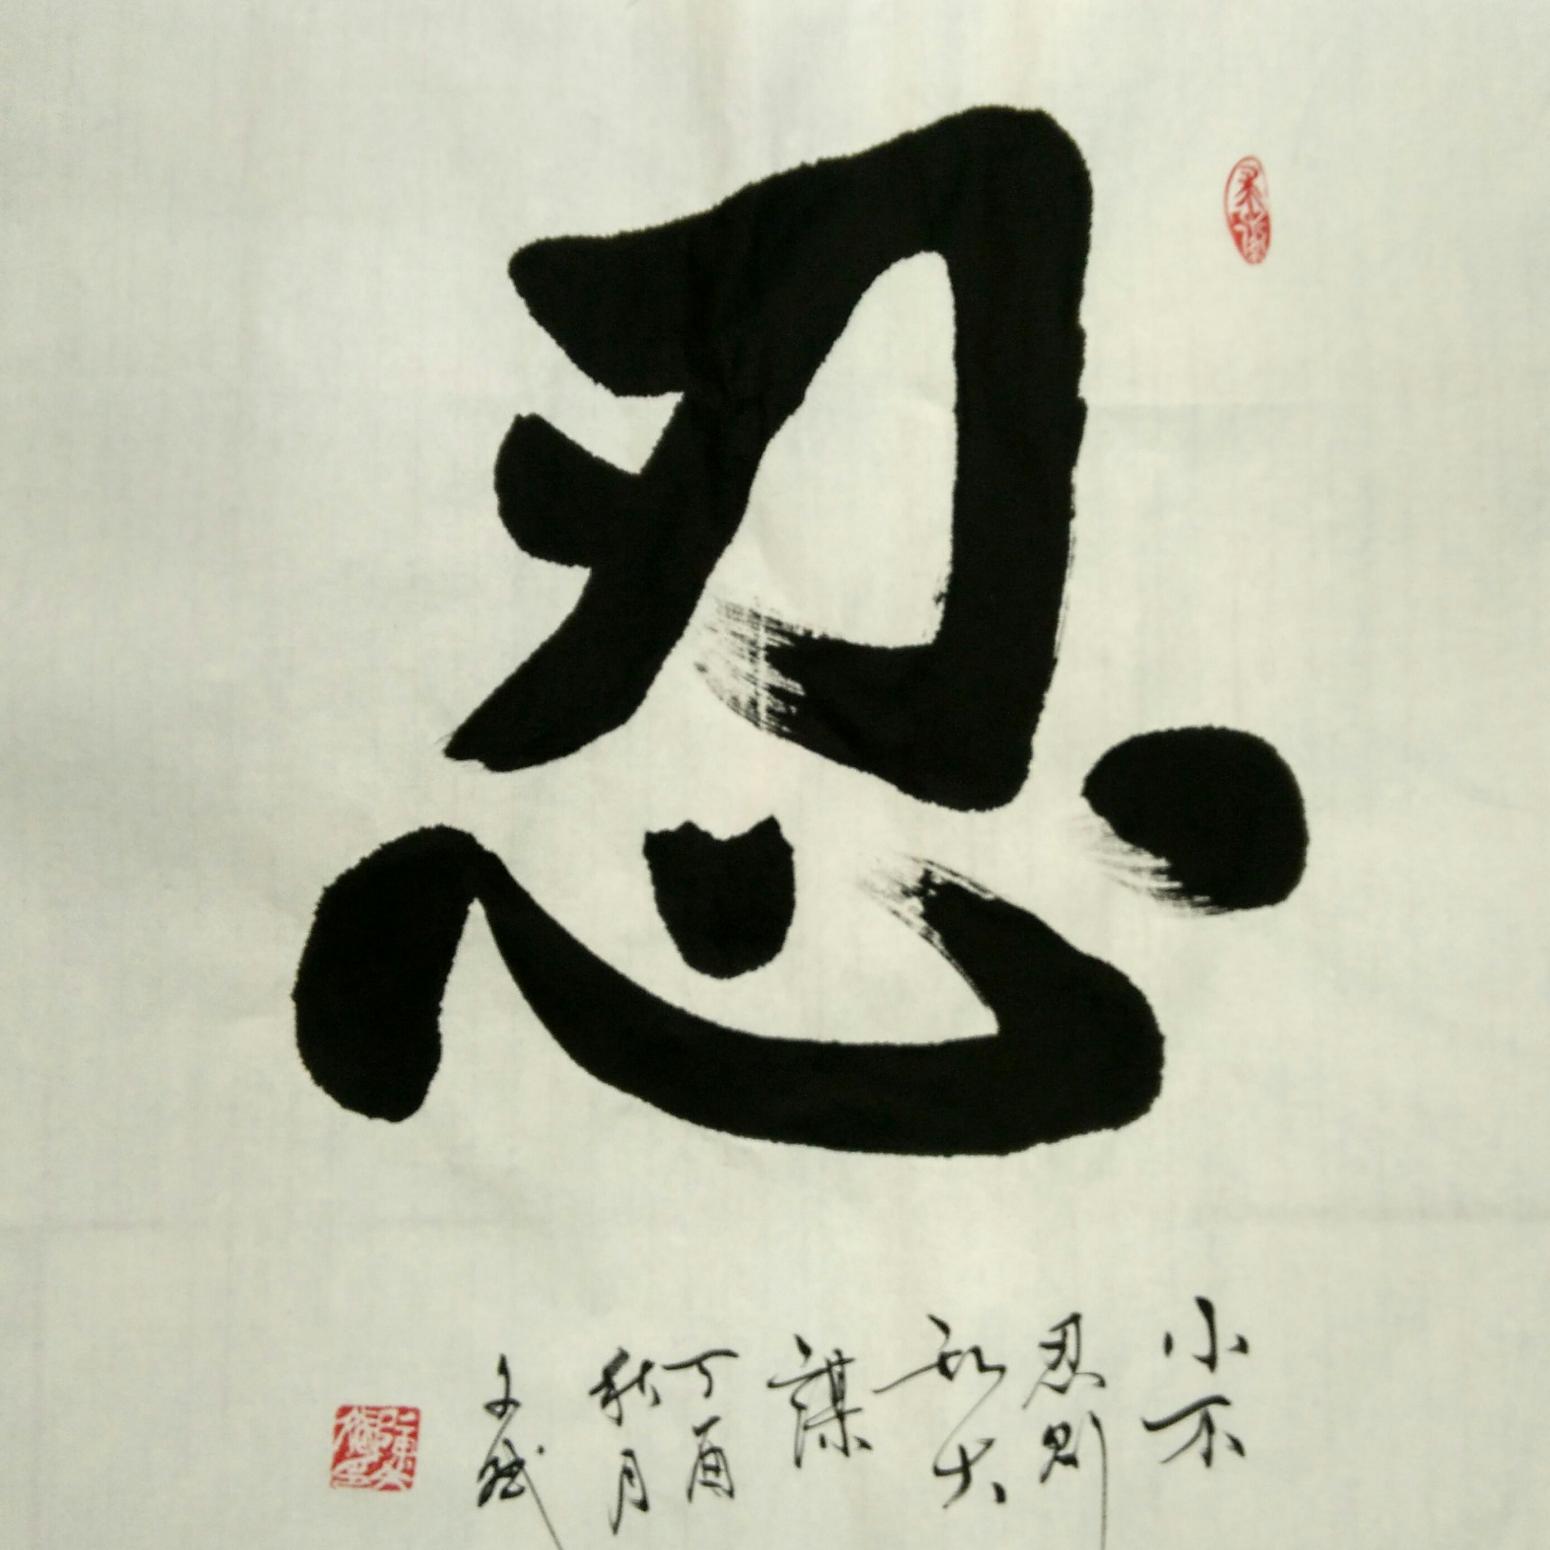 忍
小不
忍则
乱大
謀
丁酉
秋月
文